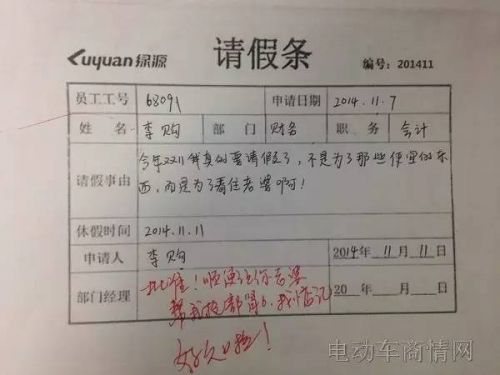 Luyuan 绿源 请假条 编号:201411
员工工号 68091 申请日期 2014.11.7
姓名 李购 部门 财务 职务 会计
请假事由 今年双11我真的要请假了,不是为了那些便宜的东
西,而是为了看住老婆啊!
休假时间 2014.11.11
申请人 李购 2014年11月11日
部门经理 批准!顺便让你老婆 20 年 月 日
帮我抢部 6,我忘记
好久了!
电动车商情网